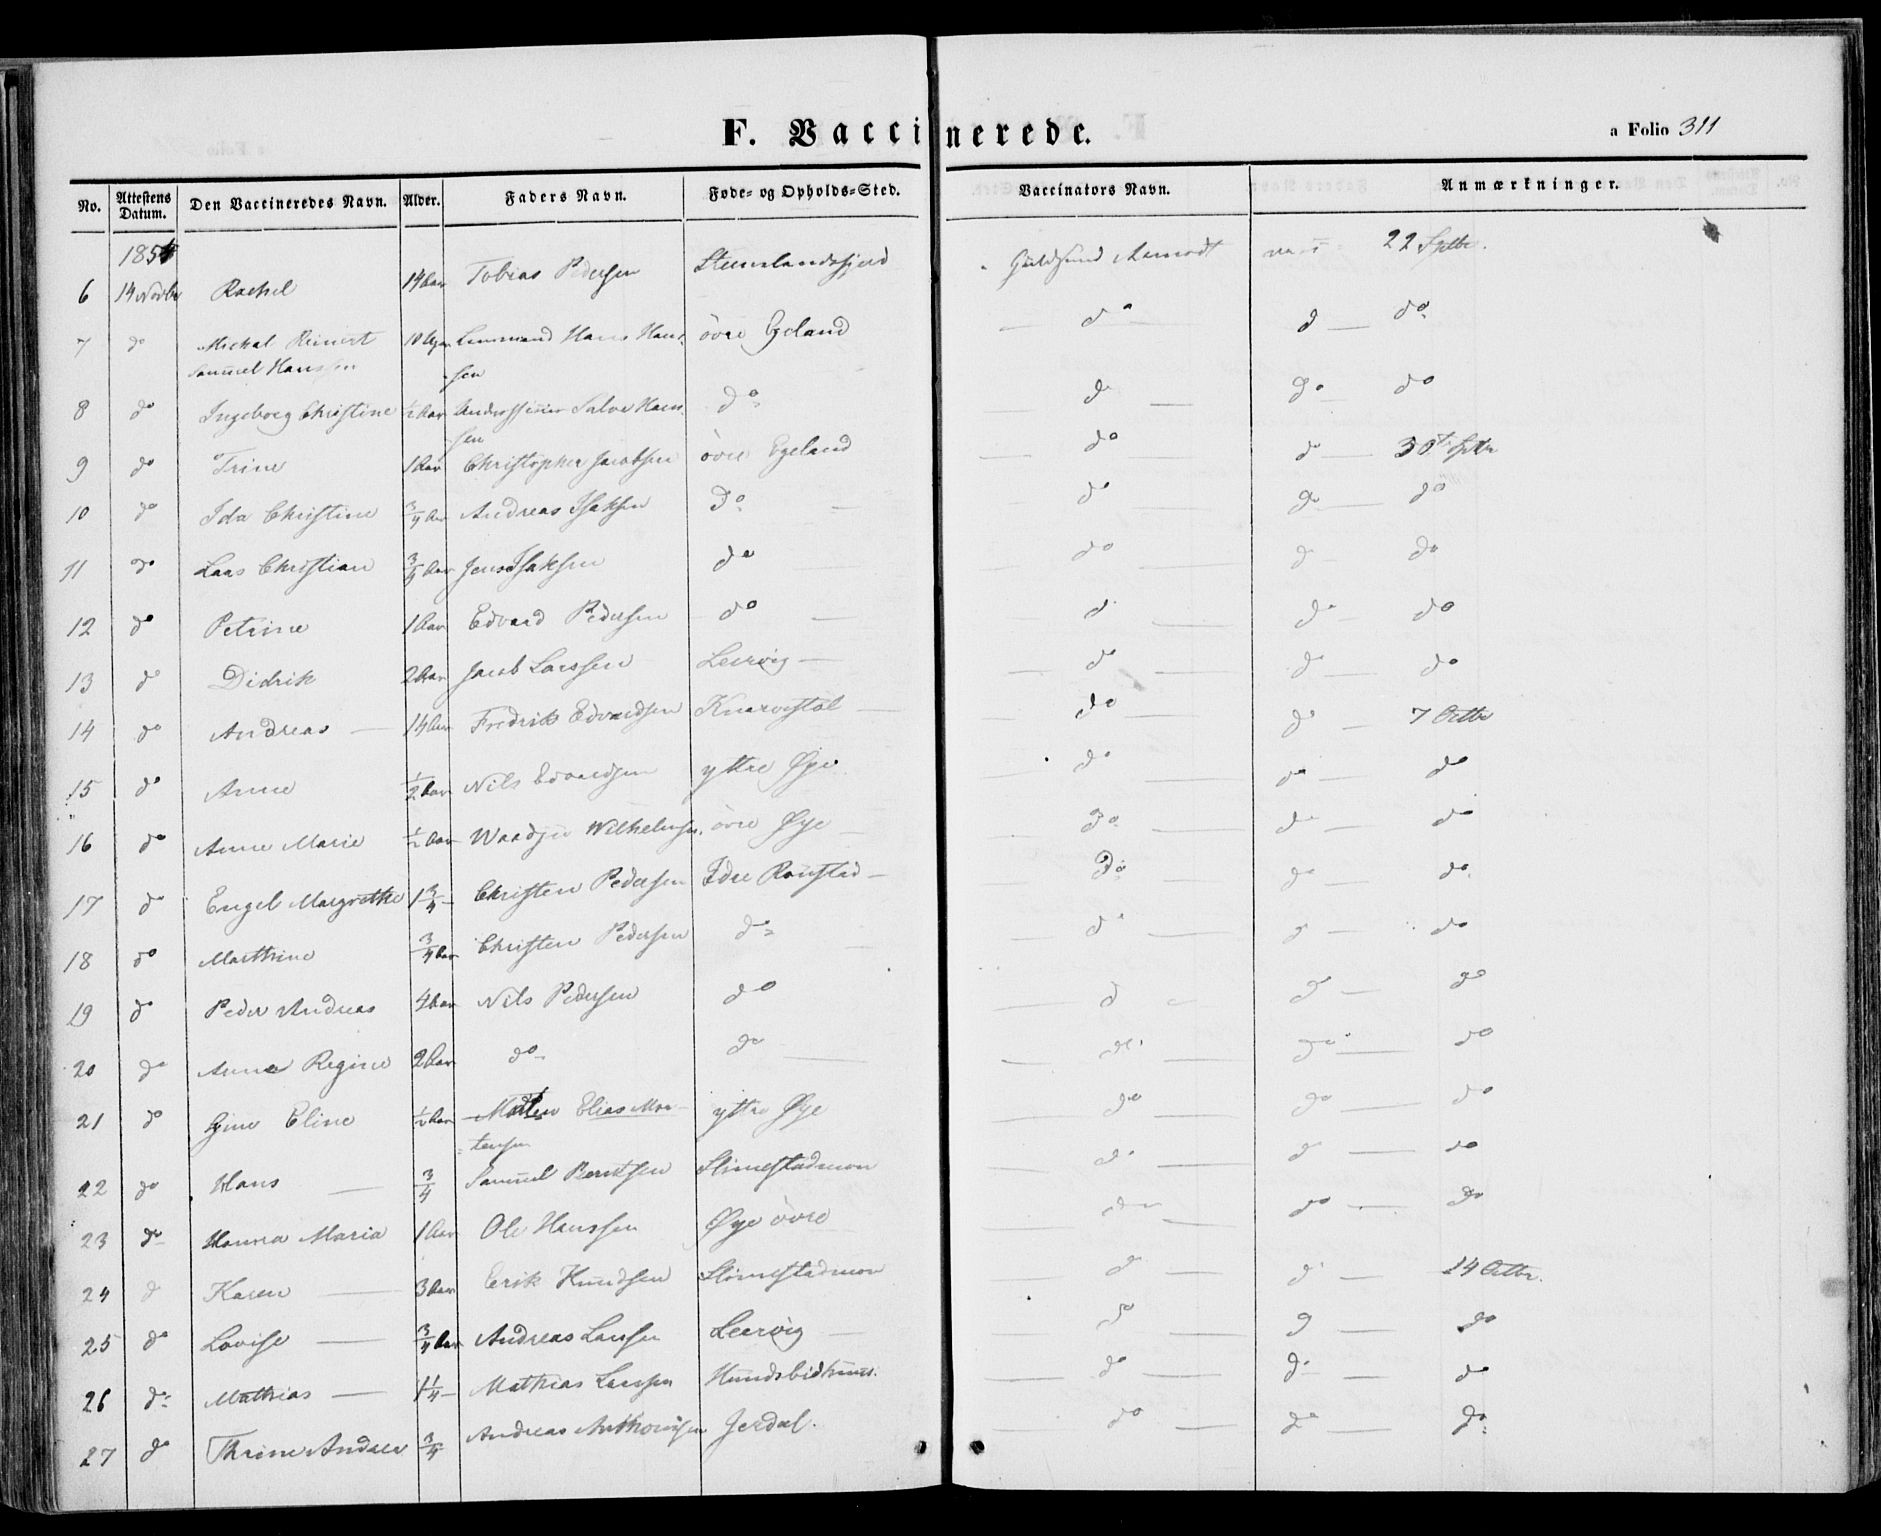 F. Vaccinerede.
a Folio 311
No. Attestens Datum. Den Vaccineredes Navn. Alder. Faders Navn. Føde- og Opholds-Sted. Vaccinators Navn. Anmærkninger.
1854
6 14 Novbr Rachel 14 Aar Tobias Pedersen Steenslandsfjeld Guldsmed Aamodt 22 Septbr.
7 do Michal Reinert 10 Lensmand Hans Hans- övre Egeland do d — do
Samuel Hanssen sen
8 do Ingeborg Christine ½ Aar Salve Hans- do d do do
sen
9 do Trine 1 Aar Christopher Jacobsen övre Egeland do do 30te Septbr
10 do Ida Christine ¾ Aar Andreas Isaksen do do do do
11 do Lars Christian ¾ Aar Jens Isaksen do do d do
12 do Petrine 1 Aar Edvard Pedersen do d do do
13 do Didrik 2 Aar Jacob Larssen Leervig do do do
14 do Andreas 14 Aar Fredrik Edvardsen Knarvestöl do do 7 Octbr
15 do Anne ½ Aar Nils Edvardsen yttre Øye do do do
16 do Anne Marie ½ Aar Wilhelmsen övre Øye do do do
17 do Engel Margrethe 1¾ Christen Pedersen Idre Rønstad do do do
18 do Marthine ¾ Aar Christen Pedersen do d d do
19 do Peder Andreas 4 Aar Nils Pedersen do d do do
20 do Anne Regine 2 Aar do do do do do
21 do Gine Eline ½ Aar Elias Mor- yttre Øye do do do
tensen
22 do Hans ¾ Samuel Berntsen Slimestadmon do do do
23 do Hanna Maria 1 Aar Ole Hanssen Øye övre do do do
24 d Karen 3 Aar Erik Knudsen Slimestadmon d d 14 Octbr.
25 do Lovise ¾ Aar Andreas Larsen Leervig do d do
26 do Mathias 1¼ Mathias Larssen do do do
27 do Thrine Andrea ¾ Andreas Anthonisen Jerdal. do do do